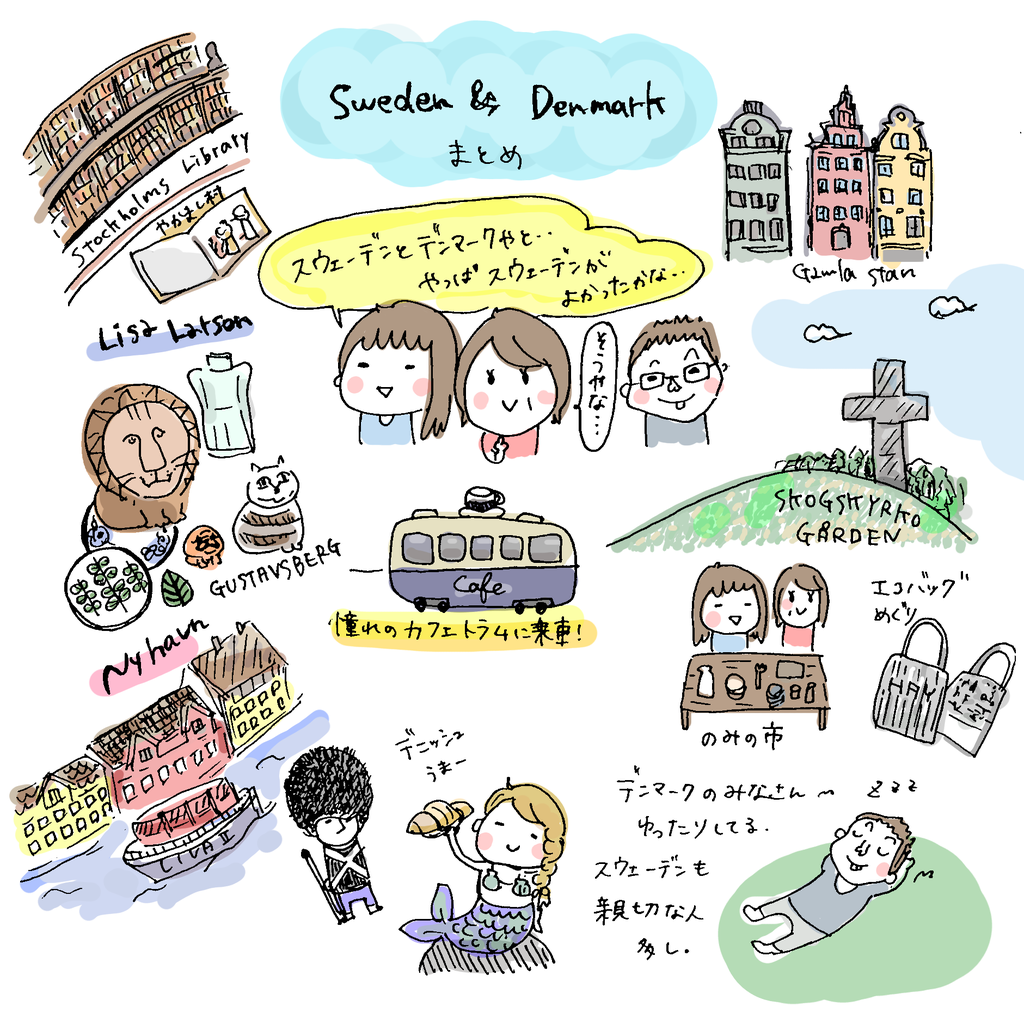 Sweden & Denmark
まとめ
Stockholms Library
やかまし村
Gamla Stan
スウェーデンとデンマークやと‥
やっぱ スウェーデンが
よかったかな‥
そうやな‥
Lisa Larson
GUSTAVSBERG
SKOGSKYRKO
GÅRDEN
Cafe
憧れのカフェトラムに乗車!
エコバッグ
めぐり
HAY
のみの市
Nyhavn
デニッシュ
うまー
デンマークのみなさん〜
ゆったりしてる.
スウェーデンも
親切な人
多し.
zzz